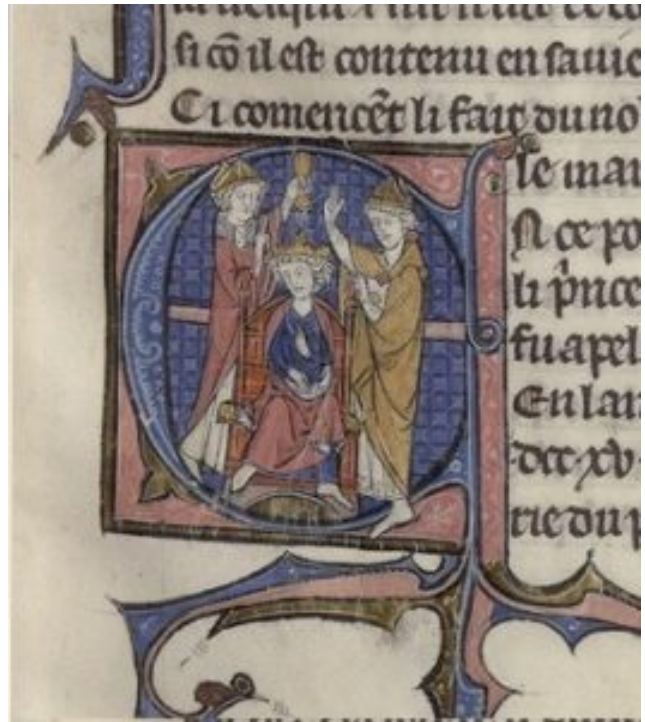 si cō il est contenu en sauie
Ci comencēt li fait du no
le mar
N ce po
li p̄nce
fu apel
En lan
·dcc·xv·
rie du p